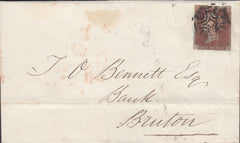 T O Bennett Esq
Bank
Bruton